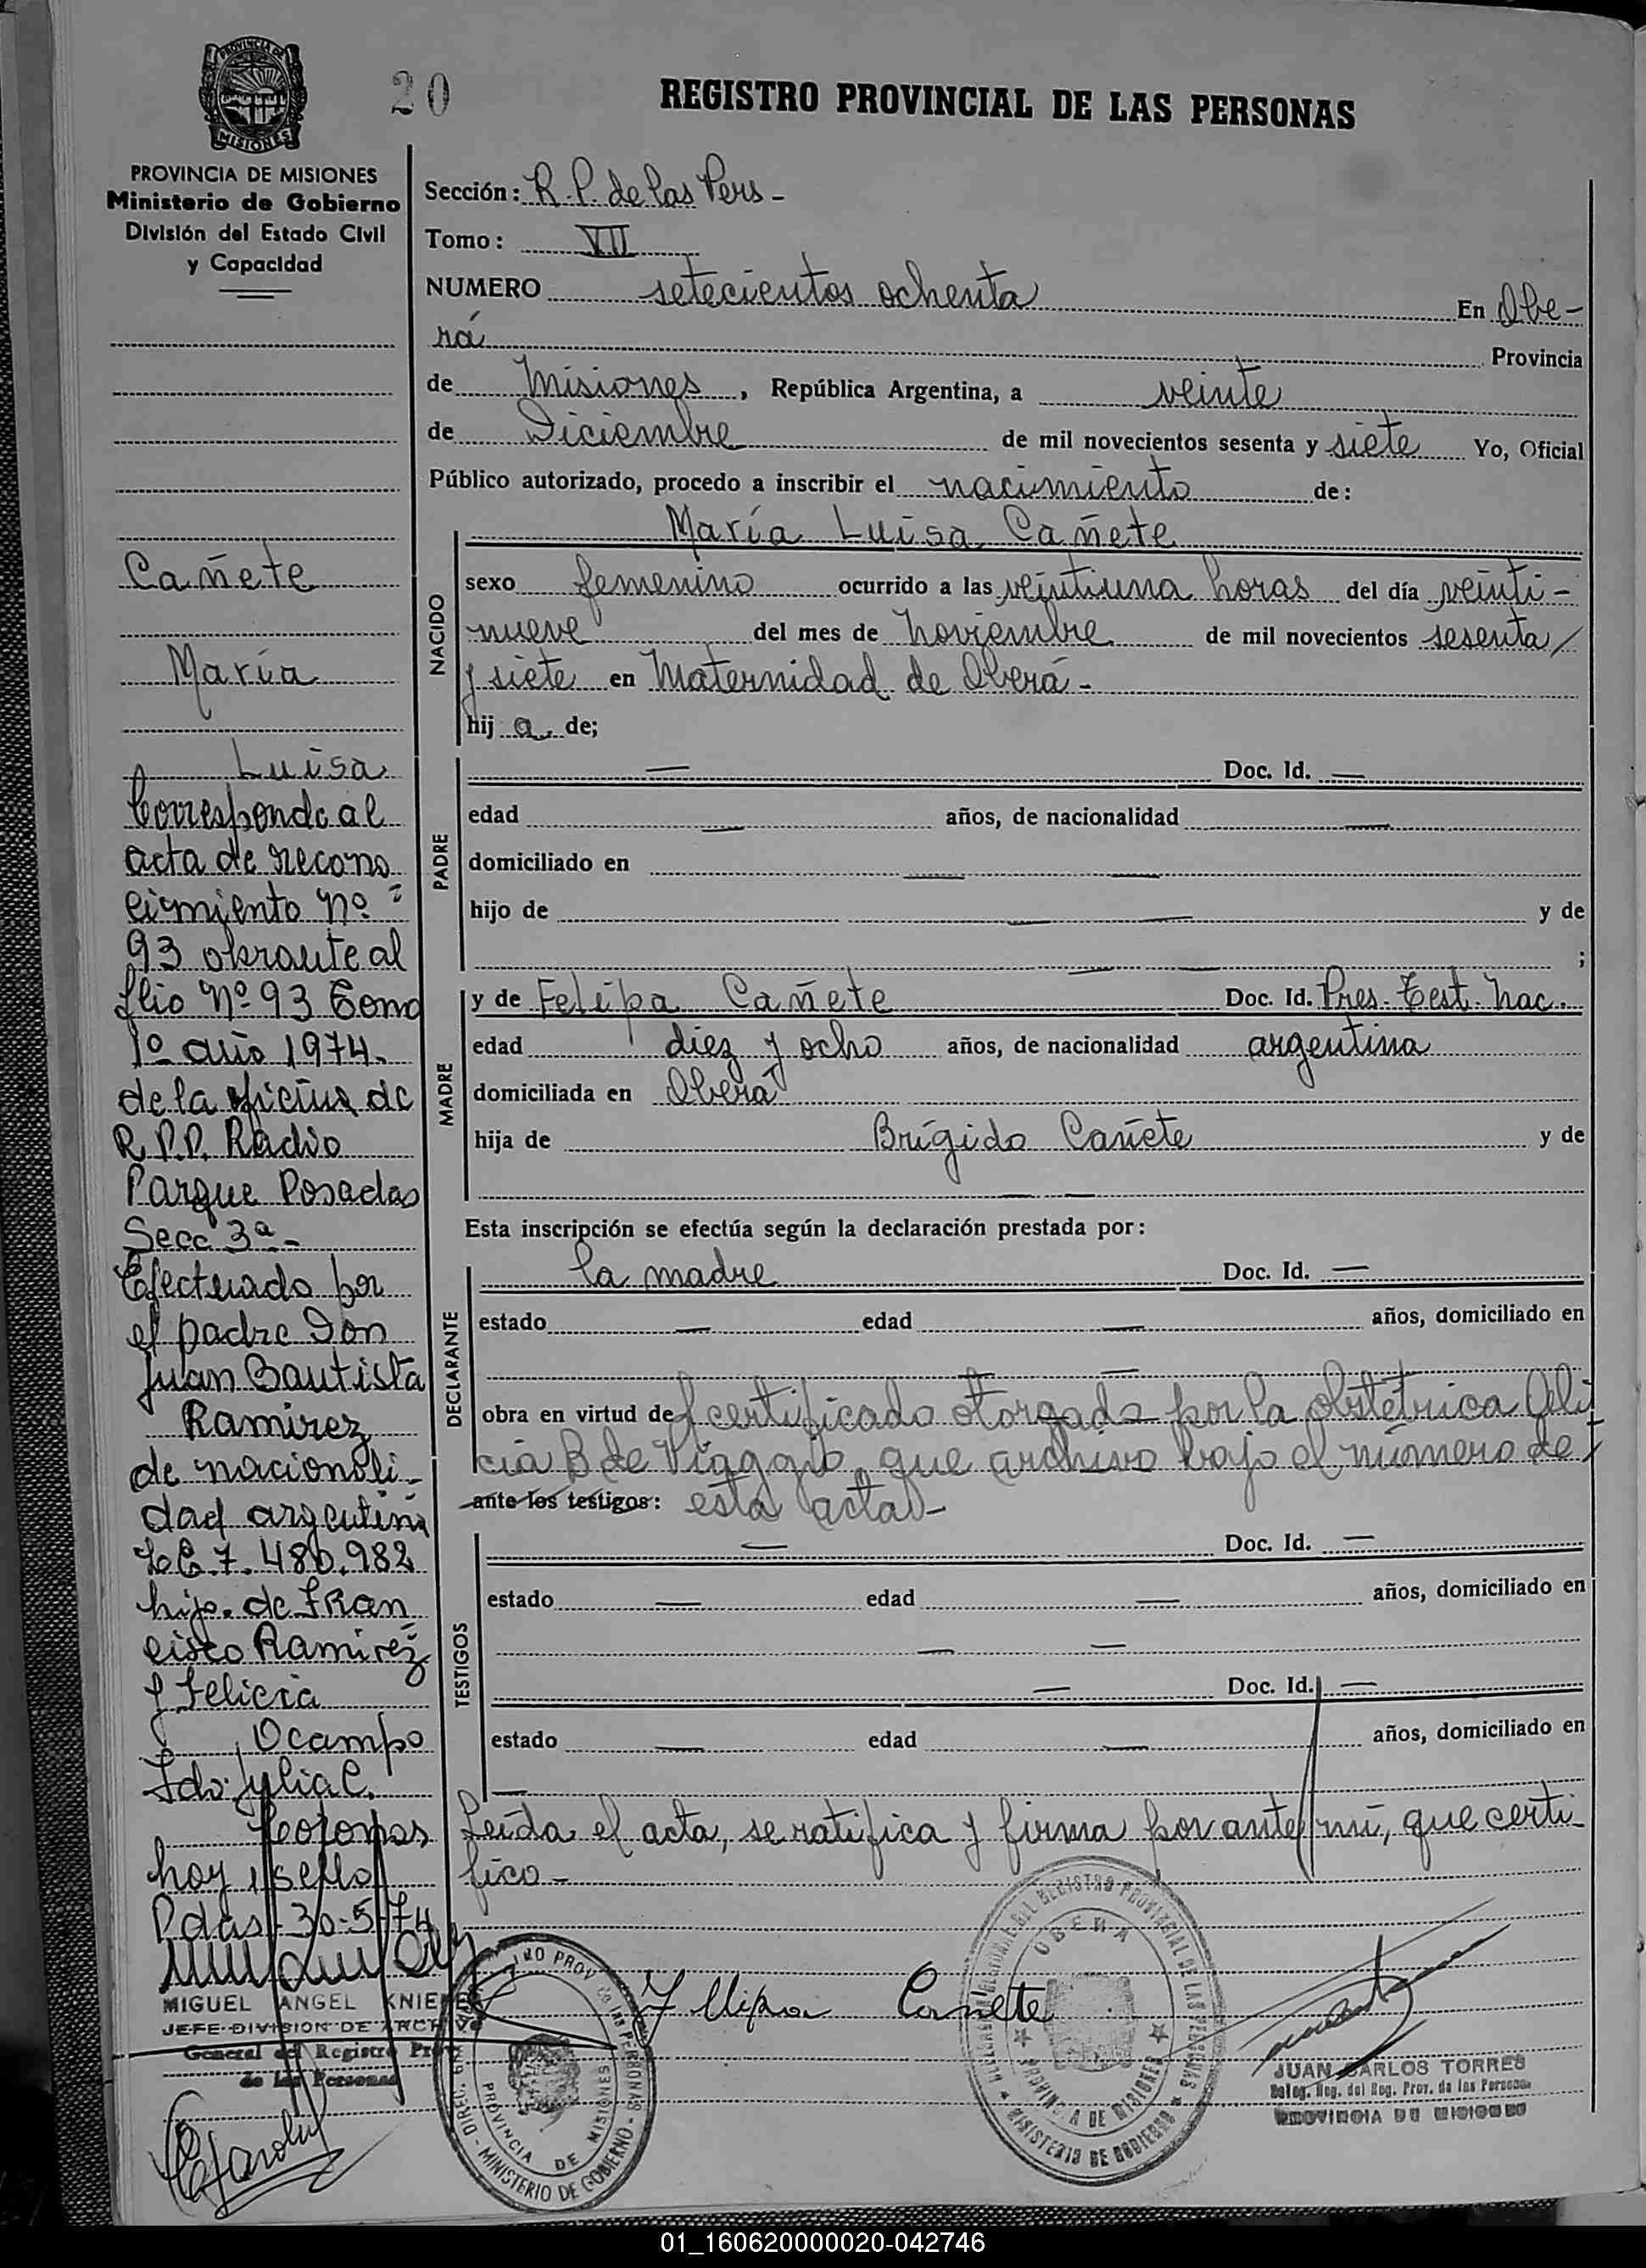 PROVINCIA DE
MISIONES
20
REGISTRO PROVINCIAL DE LAS PERSONAS
PROVINCIA DE MISIONES
Ministerio de Gobierno
División del Estado Civil
y Capacidad
Cañete
María
Luisa
Corresponde al
acta de recono
cimiento nº
93 obrante al
flio Nº 93 Tomo
1º año 1974.
de la oficina de
R.P.P. Radio
Parque Posadas
Secc 3ª -
Efectuado por
el padre Don
Juan Bautista
Ramirez
de nacionali-
dad argentina
7.480.982
hijo de Fran
cisco Ramirez
y Felicia
Ocampo
Fdo: Julia C.
hoy sello
Pdas 30-5-74
MIGUEL ANGEL
JEFE DIVISION DE
General del Registro
de las Personas
Sección: R.P. de las Pers -
Tomo: VII
NUMERO setecientos ochenta En Obe-
rá Provincia
de Misiones, República Argentina, a veinte
de Diciembre de mil novecientos sesenta y siete Yo, Oficial
Público autorizado, procedo a inscribir el nacimiento de:
NACIDO
María Luisa Cañete
sexo femenino ocurrido a las veintiuna horas del día veinti-
nueve del mes de Noviembre de mil novecientos sesenta/
y siete en Maternidad de Oberá-
hij a de;
PADRE
— Doc. Id. —
edad — años, de nacionalidad —
domiciliado en — —
hijo de — — y de
— — ;
MADRE
y de Felipa Cañete Doc. Id. Pres. Test. Nac.
edad diez y ocho años, de nacionalidad argentina
domiciliada en Oberá
hija de Brígido Cañete y de
— —
Esta inscripción se efectúa según la declaración prestada por:
DECLARANTE
la madre Doc. Id. —
estado — edad — años, domiciliado en
— —
obra en virtud del certificado otorgado por la obstétrica Ali
cia B de Viaggio, que archivo bajo el número de
ante los testigos: esta acta-
TESTIGOS
— Doc. Id. —
estado — edad — años, domiciliado en
— —
— Doc. Id. —
estado — edad — años, domiciliado en
—
Leída el acta, se ratifica y firma por ante mí, que certi-
fico -
Felipa Cañete
PROVINCIA DE MISIONES
MINISTERIO DE GOBIERNO
OBERA
JUAN CARLOS TORRES
Deleg. Reg. del Reg. Prov. de las Personas
PROVINCIA DE MISIONES
01_160620000020-042746